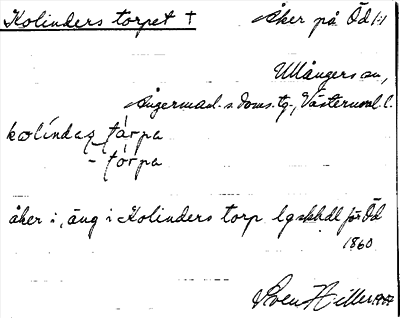 Kolinders torpet † Åker på Öd 1:1
Ullångers sn,
Ångermanl. s doms. tg., Västernorrl. l.
kolindaʂ tårpa
– tórpa
åker i, äng i Kolinders torp lgskhdl för Öd
1860
Sven Hillert